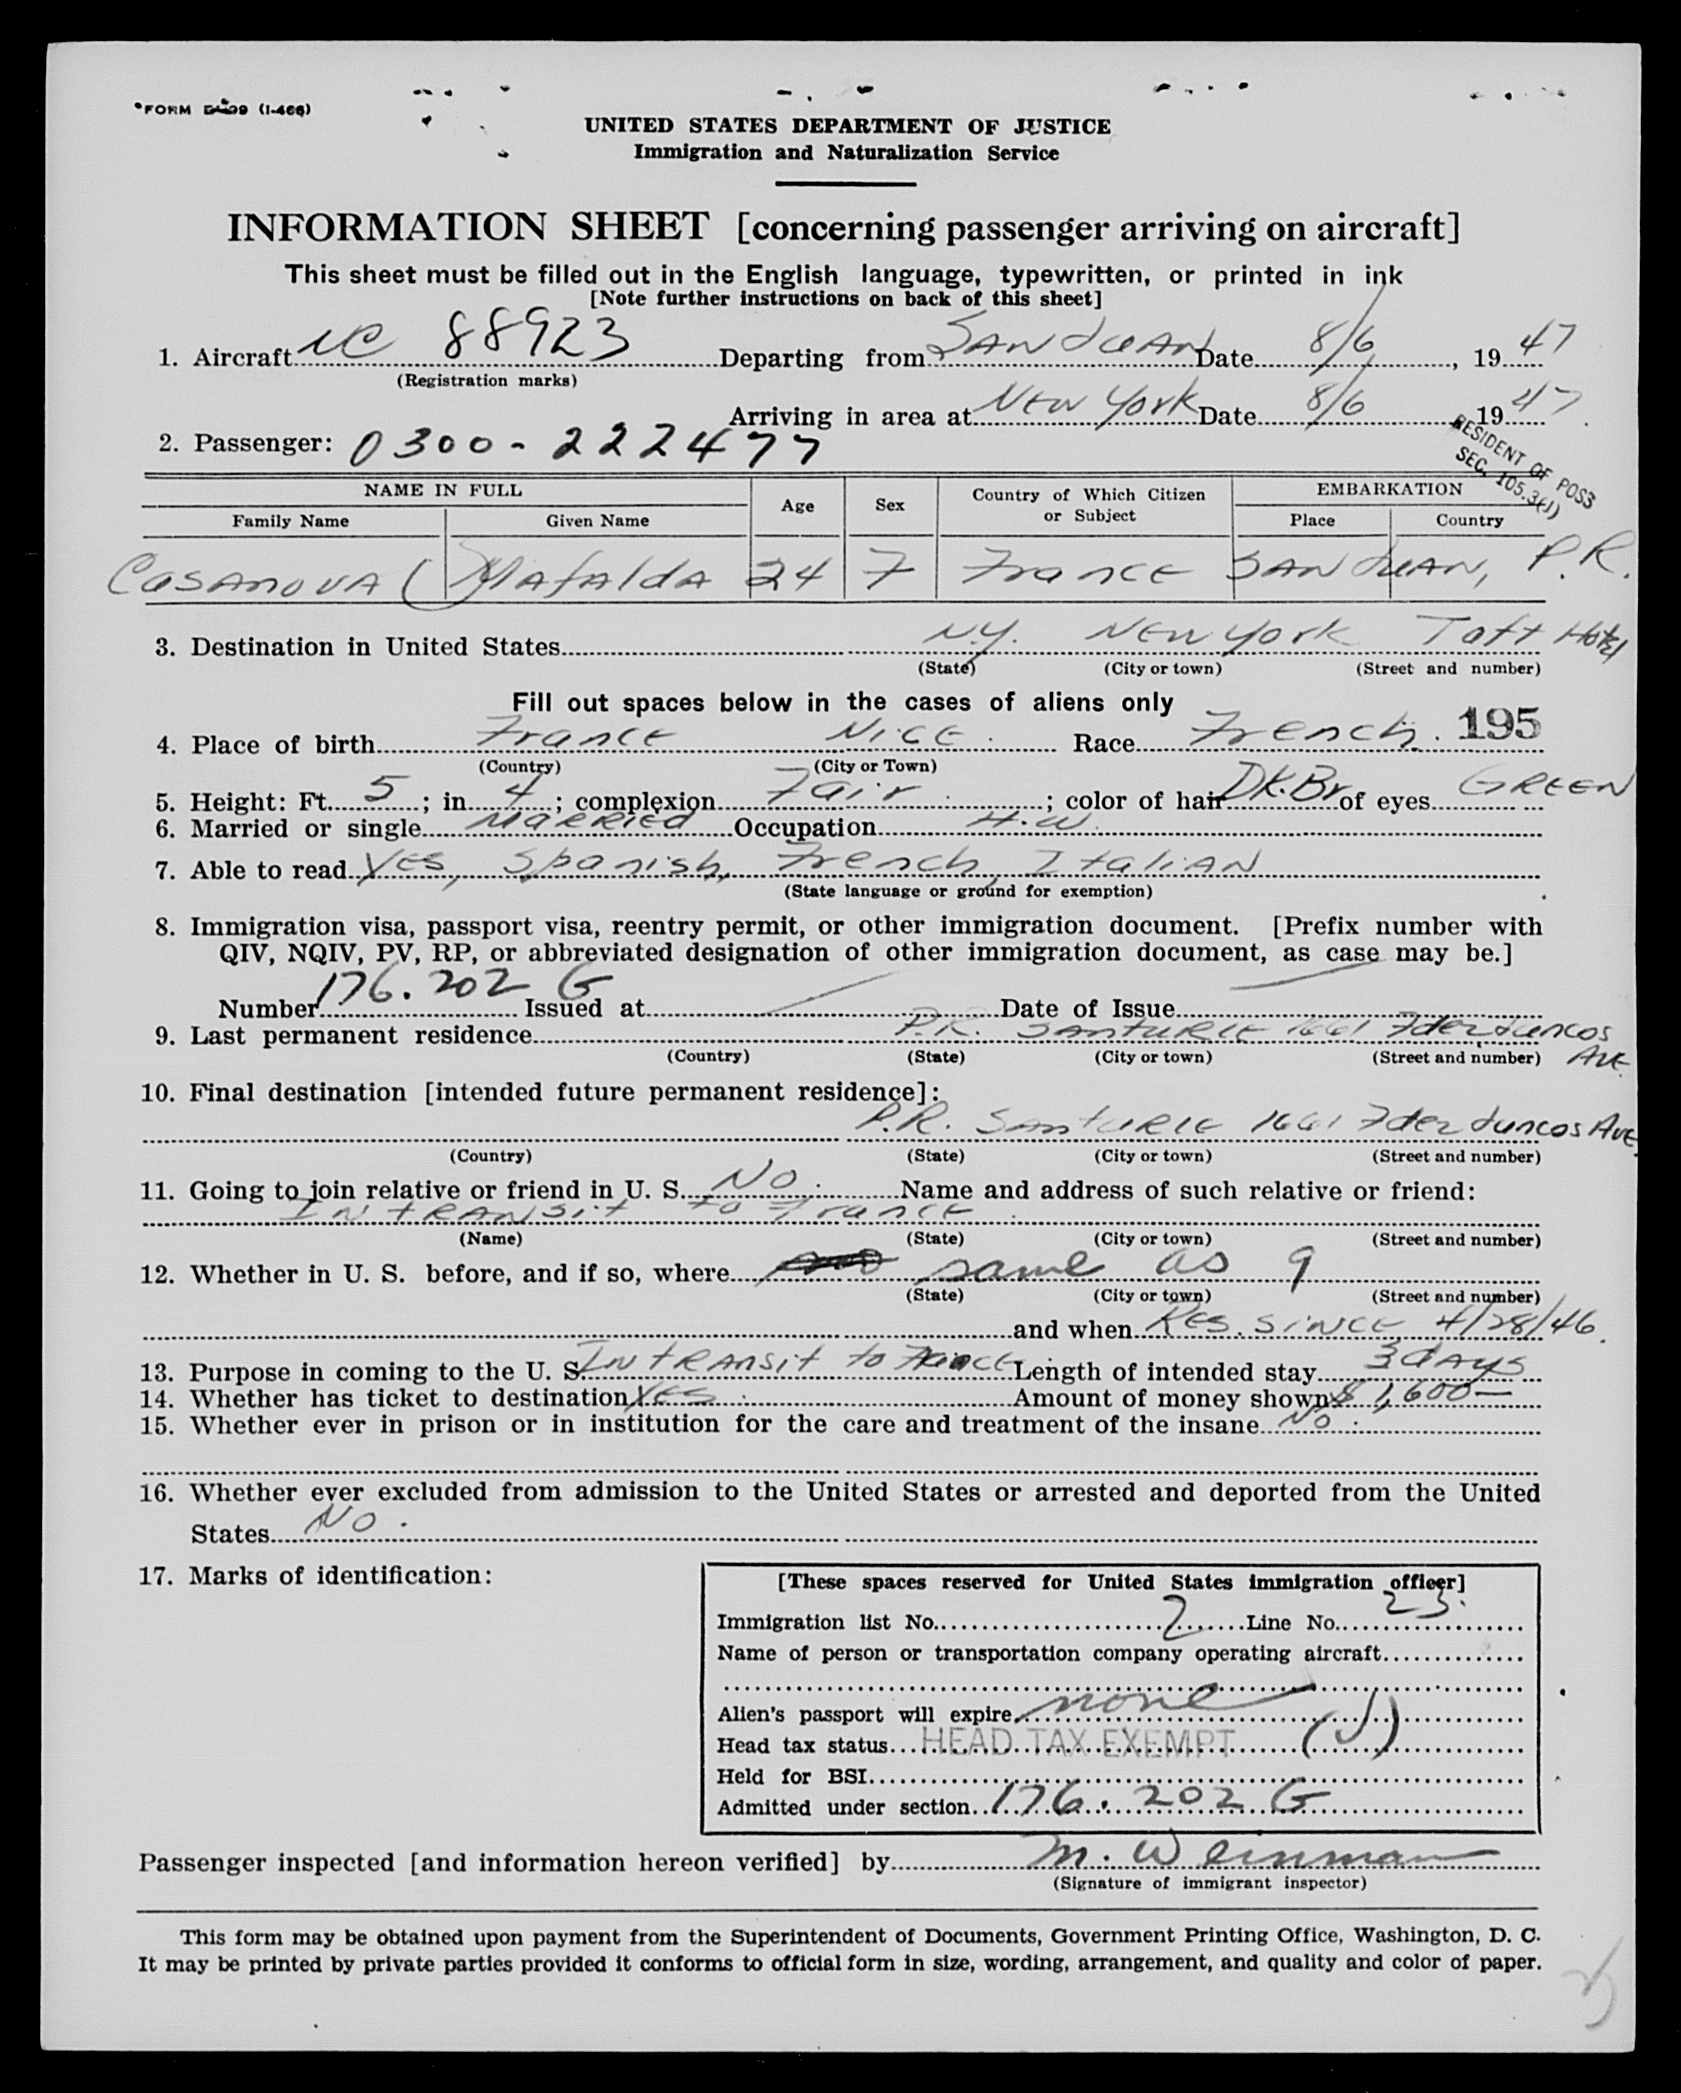 FORM (I-466)
UNITED STATES DEPARTMENT OF JUSTICE
Immigration and Naturalization Service
INFORMATION SHEET [concerning passenger arriving on aircraft]
This sheet must be filled out in the English language, typewritten, or printed in ink
[Note further instructions on back of this sheet]
1. Aircraft NC 88923 Departing from SAN JUAN Date 8/6, 1947
(Registration marks)
Arriving in area at NEW York Date 8/6 1947
2. Passenger: 0300-222477
RESIDENT OF POSS
SEC. 105.3(1)
NAME IN FULL Age Sex Country of Which Citizen or Subject EMBARKATION
Family Name Given Name Place Country
CASANOVA Mafalda 24 F France SAN JUAN, P.R.
3. Destination in United States N.Y. NEW York Taft Hotel
(State) (City or town) (Street and number)
Fill out spaces below in the cases of aliens only
195
4. Place of birth France NICE Race French.
(Country) (City or Town)
5. Height: Ft. 5; in. 4; complexion Fair; color of hair DK.Br of eyes GREEN
6. Married or single MARRIED Occupation H.W.
7. Able to read YES, Spanish, French, ITALIAN
(State language or ground for exemption)
8. Immigration visa, passport visa, reentry permit, or other immigration document. [Prefix number with
QIV, NQIV, PV, RP, or abbreviated designation of other immigration document, as case may be.]
Number 176.202 G Issued at Date of Issue
9. Last permanent residence P.R. SANTURCE 1661 Fdez Juncos Ave.
(Country) (State) (City or town) (Street and number)
10. Final destination [intended future permanent residence]:
P.R. Santurce 1661 Fdez Juncos Ave.
(Country) (State) (City or town) (Street and number)
11. Going to join relative or friend in U. S. No. Name and address of such relative or friend:
IN TRANSIT to France
(Name) (State) (City or town) (Street and number)
12. Whether in U. S. before, and if so, where same as 9
(State) (City or town) (Street and number)
and when RES. SINCE 4/28/46.
13. Purpose in coming to the U. S. IN TRANSIT to France Length of intended stay 3 days
14. Whether has ticket to destination YES. Amount of money shown $ 1,600—
15. Whether ever in prison or in institution for the care and treatment of the insane No.
16. Whether ever excluded from admission to the United States or arrested and deported from the United
States No.
17. Marks of identification:
[These spaces reserved for United States immigration officer]
Immigration list No. 2 Line No. 23.
Name of person or transportation company operating aircraft
Alien's passport will expire none
Head tax status HEAD TAX EXEMPT (J)
Held for BSI
Admitted under section 176.202 G
Passenger inspected [and information hereon verified] by M. Weinman
(Signature of immigrant inspector)
This form may be obtained upon payment from the Superintendent of Documents, Government Printing Office, Washington, D. C.
It may be printed by private parties provided it conforms to official form in size, wording, arrangement, and quality and color of paper.